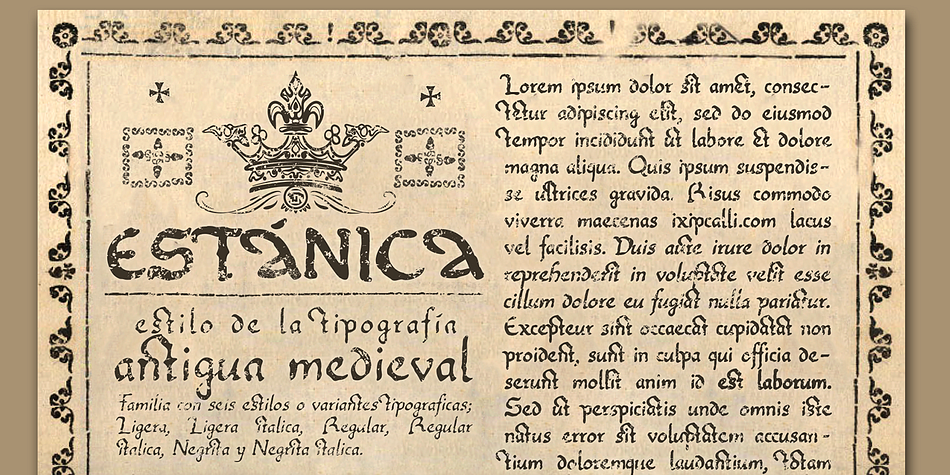 ESTÁNICA
estilo de la tipografía
antigua medieval
Familia con seis estilos o variantes tipograficas;
Ligera, Ligera italica, Regular, Regular
italica, Negrita y Negrita italica.
Lorem ipsum dolor sit amet, consec-
tetur adipiscing elit, sed do eiusmod
tempor incididunt ut labore et dolore
magna aliqua. Quis ipsum suspendis-
se ultrices gravida. Risus commodo
viverra maecenas ixipcalli.com lacus
vel facilisis. Duis aute irure dolor in
reprehenderit in voluptate velit esse
cillum dolore eu fugiat nulla pariatur.
Excepteur sint occaecat cupidatat non
proident, sunt in culpa qui officia de-
serunt mollit anim id est laborum.
Sed ut perspiciatis unde omnis iste
natus error sit voluptatem accusan-
tium doloremque laudantium, totam